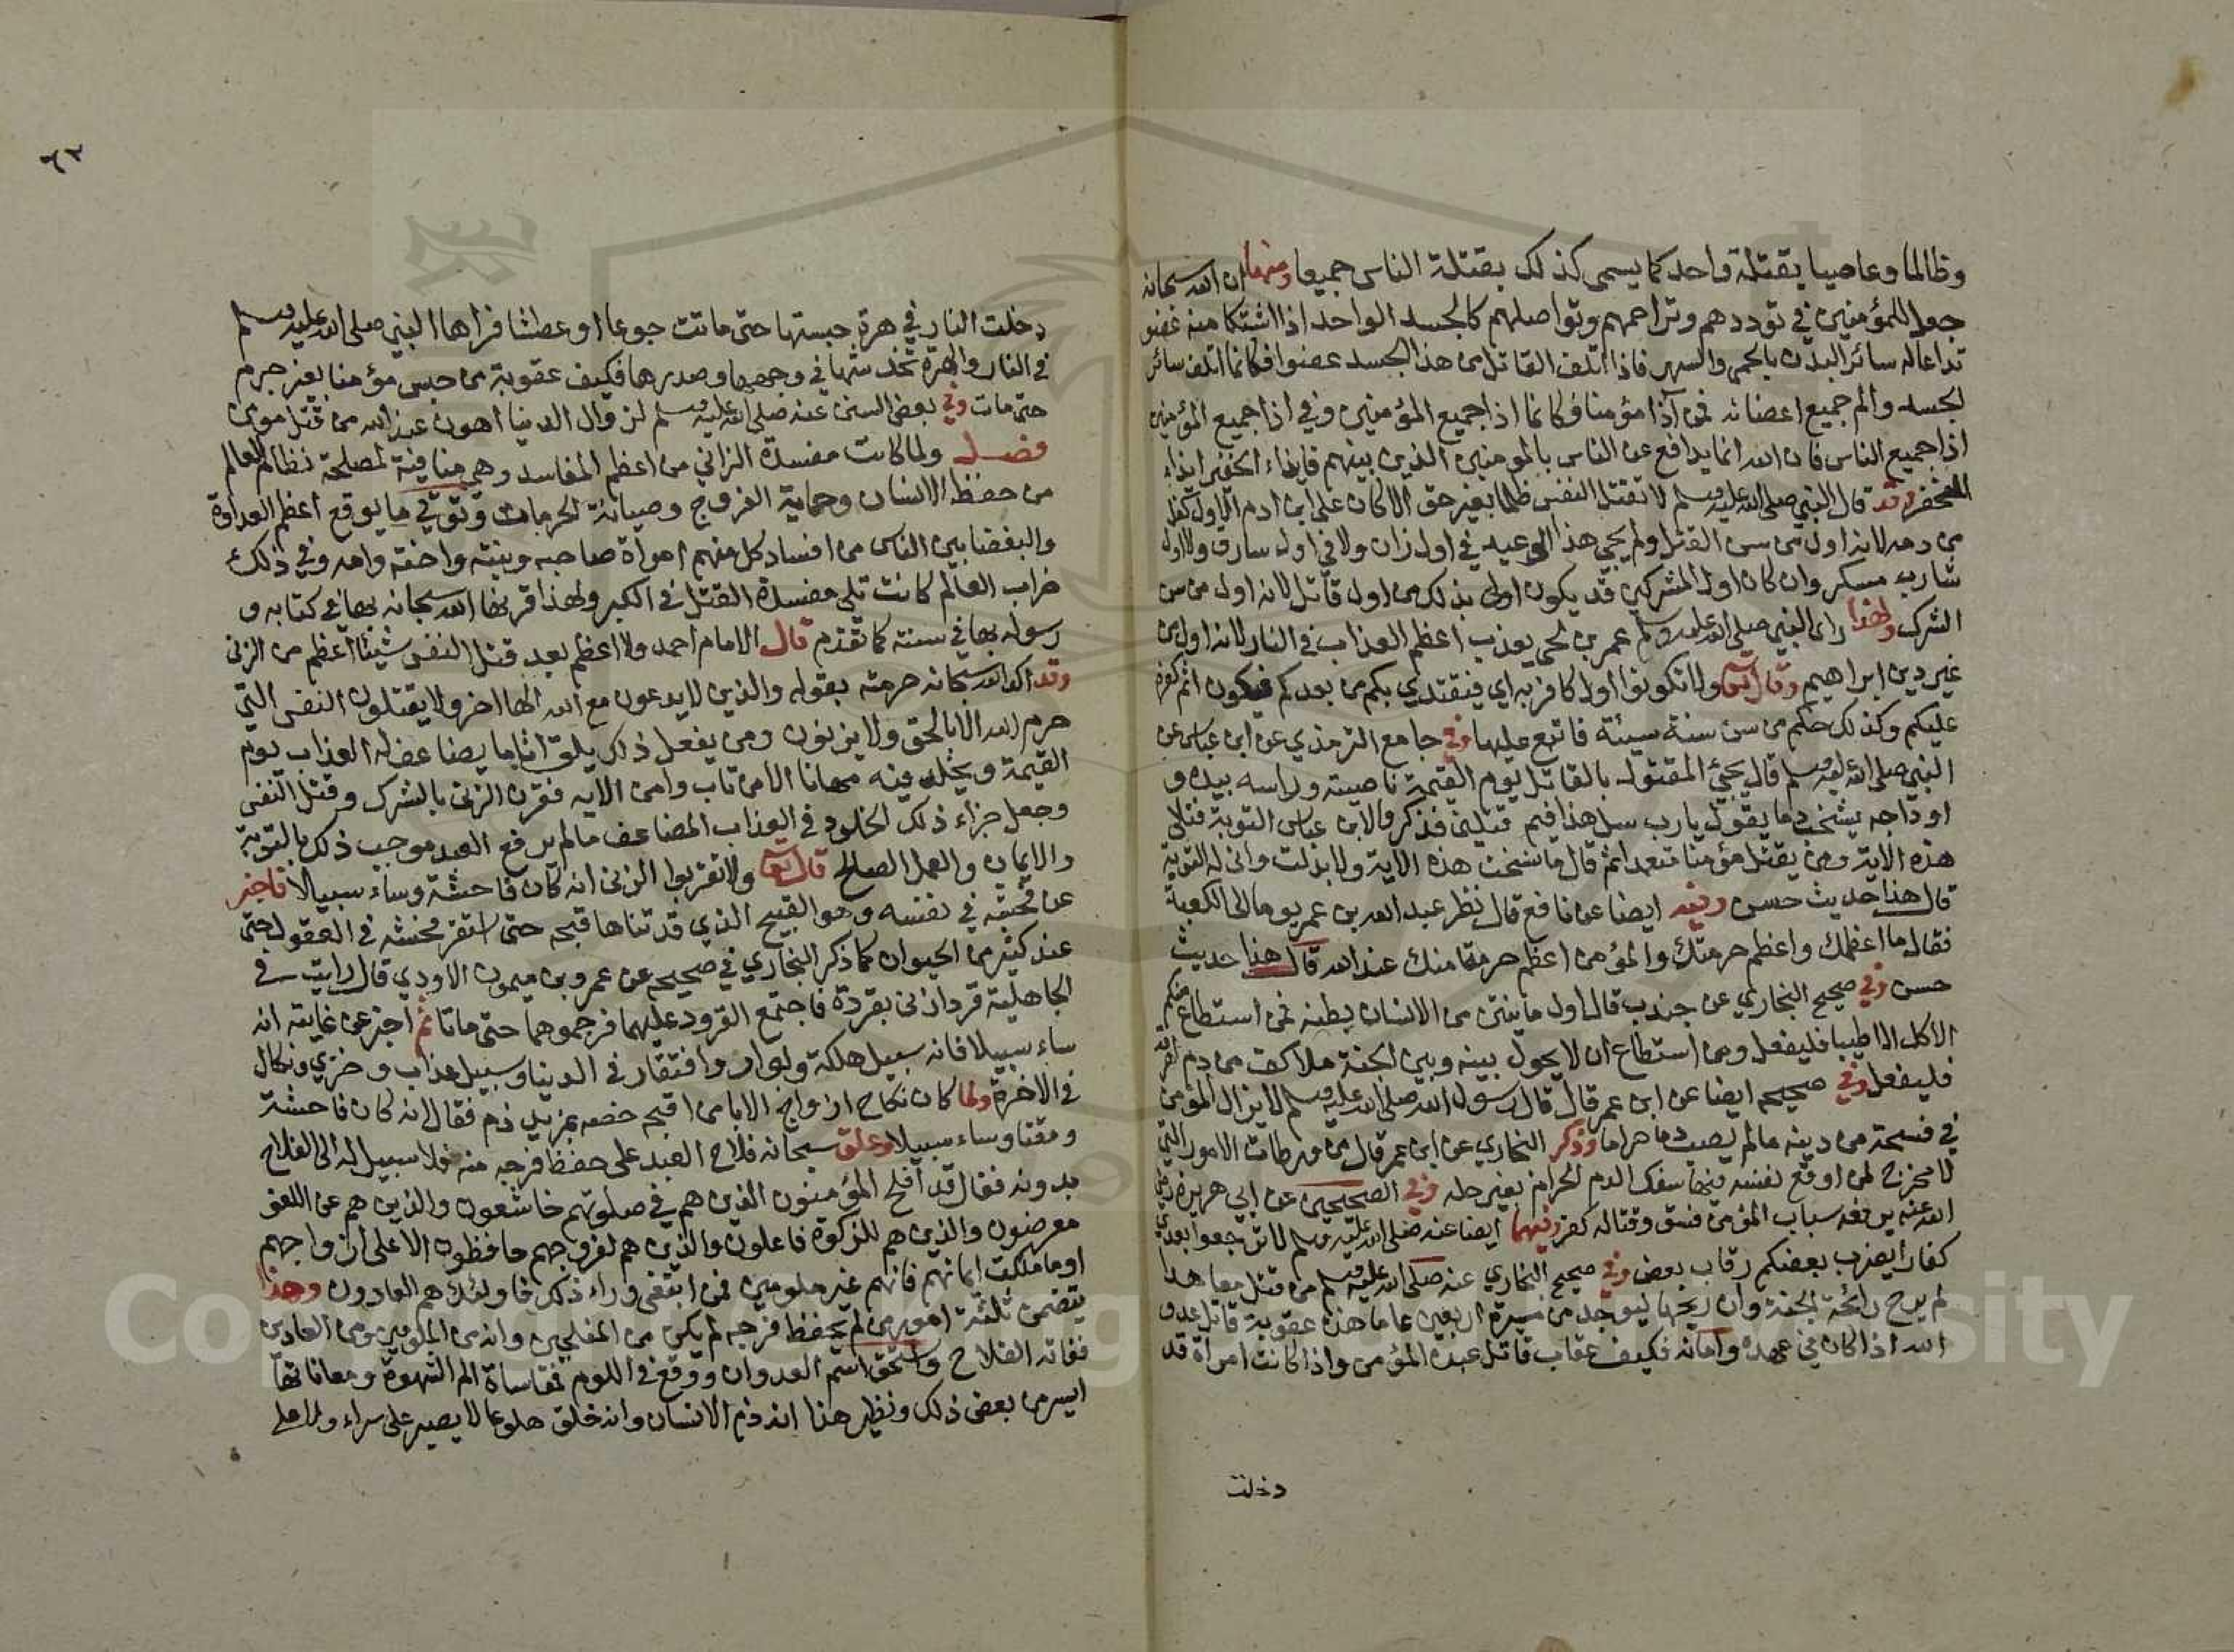 وظالما وعاصيا بقتلة واحد كما يسمى كذلك بقتلة الناس جميعا ومنها ان الله سبحانه
جعل المؤمنين في توددهم وتراحمهم وتواصلهم كالجسد الواحد اذا اشتكا منه عضو
تداعا له سائر البدن بالحمى والسهر فاذا اتلف القاتل من هذا الجسد عضوا فكانما اتلف سائر
الجسد والم جميع اعضائه فمن آذا مؤمنا فكانما اذا جميع المؤمنين وفي اذا جميع المؤمنين
اذا جميع الناس فان الله انما يدافع عن الناس بالمومنين الذين بينهم فايذاء الخفير ايذاء
المخفر وقد قال النبي صلى الله عليه وسلم لا تقتل النفس ظلما بغير حق الا كان على ابن ادم الاول كفل
من دمه لانه اول من سن القتل ولم يجي هذا الوعيد في اول زان ولا في اول سارق ولا اول
شارب مسكر وان كان اول المشركين قد يكون اولى بذلك من اول قاتل لانه اول من سن
الشرك ولهذا راى النبي صلى الله عليه وسلم عمر بن لحي يعذب اعظم العذاب في النار لانه اول من
غير دين ابراهيم وقال تعالى ولا تكونوا اول كافر به اي فيقتدي بكم من بعدكم فيكون اثم كفره
عليكم وكذلك حكم من سن سنة سيئة فاتبع عليها وفي جامع الترمذي عن ابن عباس عن
النبي صلى الله عليه وسلم قال يجيئ المقتول بالقاتل يوم القيمة ناصيته وراسه بيده و
اوداجه يشخب دما يقول يارب سل هذا فيم قتلني فذكروا لابن عباس التوبة فتلى
هذه الاية ومن يقتل مؤمنا متعمدا ثم قال ما نسخت هذه الاية ولا بدلت وانى له التوبة
قال هذا حديث حسن وفيه ايضا عن نافع قال نظر عبد الله بن عمر يوما الى الكعبة
فقال ما اعظمك واعظم حرمتك والمؤمن اعظم حرمة منك عند الله قال هذا حديث
حسن وفي صحيح البخاري عن جندب قال اول ما ينتن من الانسان بطنه فمن استطاع منكم
الاكل الا طيبا فليفعل ومن استطاع ان لا يحول بينه وبين الجنة ملا كف من دم اهرقه
فليفعل وفي صحيحه ايضا عن ابن عمر قال قال رسول الله صلى الله عليه وسلم لا يزال المؤمن
في فسحة من دينه ما لم يصيب دما حراما وذكر البخاري عن ابن عمر قال من ورطات الامور التي
لا مخرج لمن اوقع نفسه فيها سفك الدم الحرام بغير حله وفي الصحيحين عن ابي هريرة رضي
الله عنه يرفعه سباب المؤمن فسق وقتاله كفر وفيهما ايضا عنه صلى الله عليه وسلم لا ترجعوا بعدي
كفارا يضرب بعضكم رقاب بعض وفي صحيح البخاري عنه صلى الله عليه وسلم من قتل معاهدا
لم يرح رائحة الجنة وان ريحها ليوجد من مسيرة اربعين عاما هذه عقوبة قاتل عدو
الله اذا كان في عهده وامانه فكيف عقاب قاتل عبده المؤمن واذا كانت امراة قد
دخلت
٦٣
دخلت النار في هرة حبستها حتى ماتت جوعا او عطشا فراها النبي صلى الله عليه وسلم
في النار والهرة تخدشها في وجهها وصدرها فكيف عقوبة من حبس مؤمنا بغير جرم
حتى مات وفي بعض السنن عنه صلى الله عليه وسلم لزوال الدنيا اهون عند الله من قتل مومن
فصل ولما كانت مفسدة الزاني من اعظم المفاسد وهي منافية لمصلحة نظام العالم
من حفظ الانسان وحماية الفروج وصيانة الحرمات وتوقي ما يوقع اعظم العداوة
والبغضا بين الناس من افساد كل منهم امراة صاحبه وبنته واخته وامه وفي ذلك
خراب العالم كانت تلي مفسدة القتل في الكبر ولهذا قرنها الله سبحانه بها في كتابه و
رسوله بها في سنته كما تقدم قال الامام احمد ولا اعظم بعد قتل النفس شيئا اعظم من الزنى
وقد اكد الله سبحانه حرمته بقوله والذين لا يدعون مع الله الها اخر ولا يقتلون النفس التي
حرم الله الا بالحق ولا يزنون ومن يفعل ذلك يلق اثاما يضاعف له العذاب يوم
القيمة ويخلد فيه مهانا الا من تاب وامن الايه فقرن الزنى بالشرك وقتل النفس
وجعل جزاء ذلك الخلود في العذاب المضاعف مالم يرفع العبد موجب ذلك بالتوبة
والايمان والعمل الصالح قال تعالى ولا تقربوا الزنى انه كان فاحشة وساء سبيلا فاخبر
عن فحشه في نفسه وهو القبيح الذي قد تناها قبحه حتى استقر فحشه في العقول حتى
عند كثير من الحيوان كما ذكر البخاري في صحيحه عن عمرو بن ميمون الاودي قال رايت في
الجاهلية قردا زنى بقردة فاجتمع القرود عليهما فرجموهما حتى ماتا ثم اخبر عن غايته انه
ساء سبيلا فانه سبيل هلكة وبوار وافتقار في الدنيا وسبيل عذاب وخزي ونكال
في الاخرة ولما كان نكاح ازواج الابا من اقبحه خصه بمزيد ذم فقال انه كان فاحشة
ومقتا وساء سبيلا وعلق سبحانه فلاح العبد على حفظ فرجه منه فلا سبيل له الى الفلاح
بدونه فقال قد افلح المؤمنون الذين هم في صلوتهم خاشعون والذين هم عن اللغو
معرضون والذين هم للزكوة فاعلون والذين هم لفروجهم حافظون الا على ازواجهم
او ما ملكت ايمانهم فانهم غير ملومين فمن ابتغى وراء ذلك فاولئك هم العادون وهذا
يتضمن ثلثة امور من لم يحفظ فرجه لم يكن من المفلحين وانه من الملومين ومن العادين
ففاته الفلاح واستحق اسم العدوان ووقع في اللوم فمقاساة الم الشهوة ومعاناتها
ايسر من بعض ذلك ونظير هذا انه ذم الانسان وانه خلق هلوعا لا يصبر على سراء ولا على